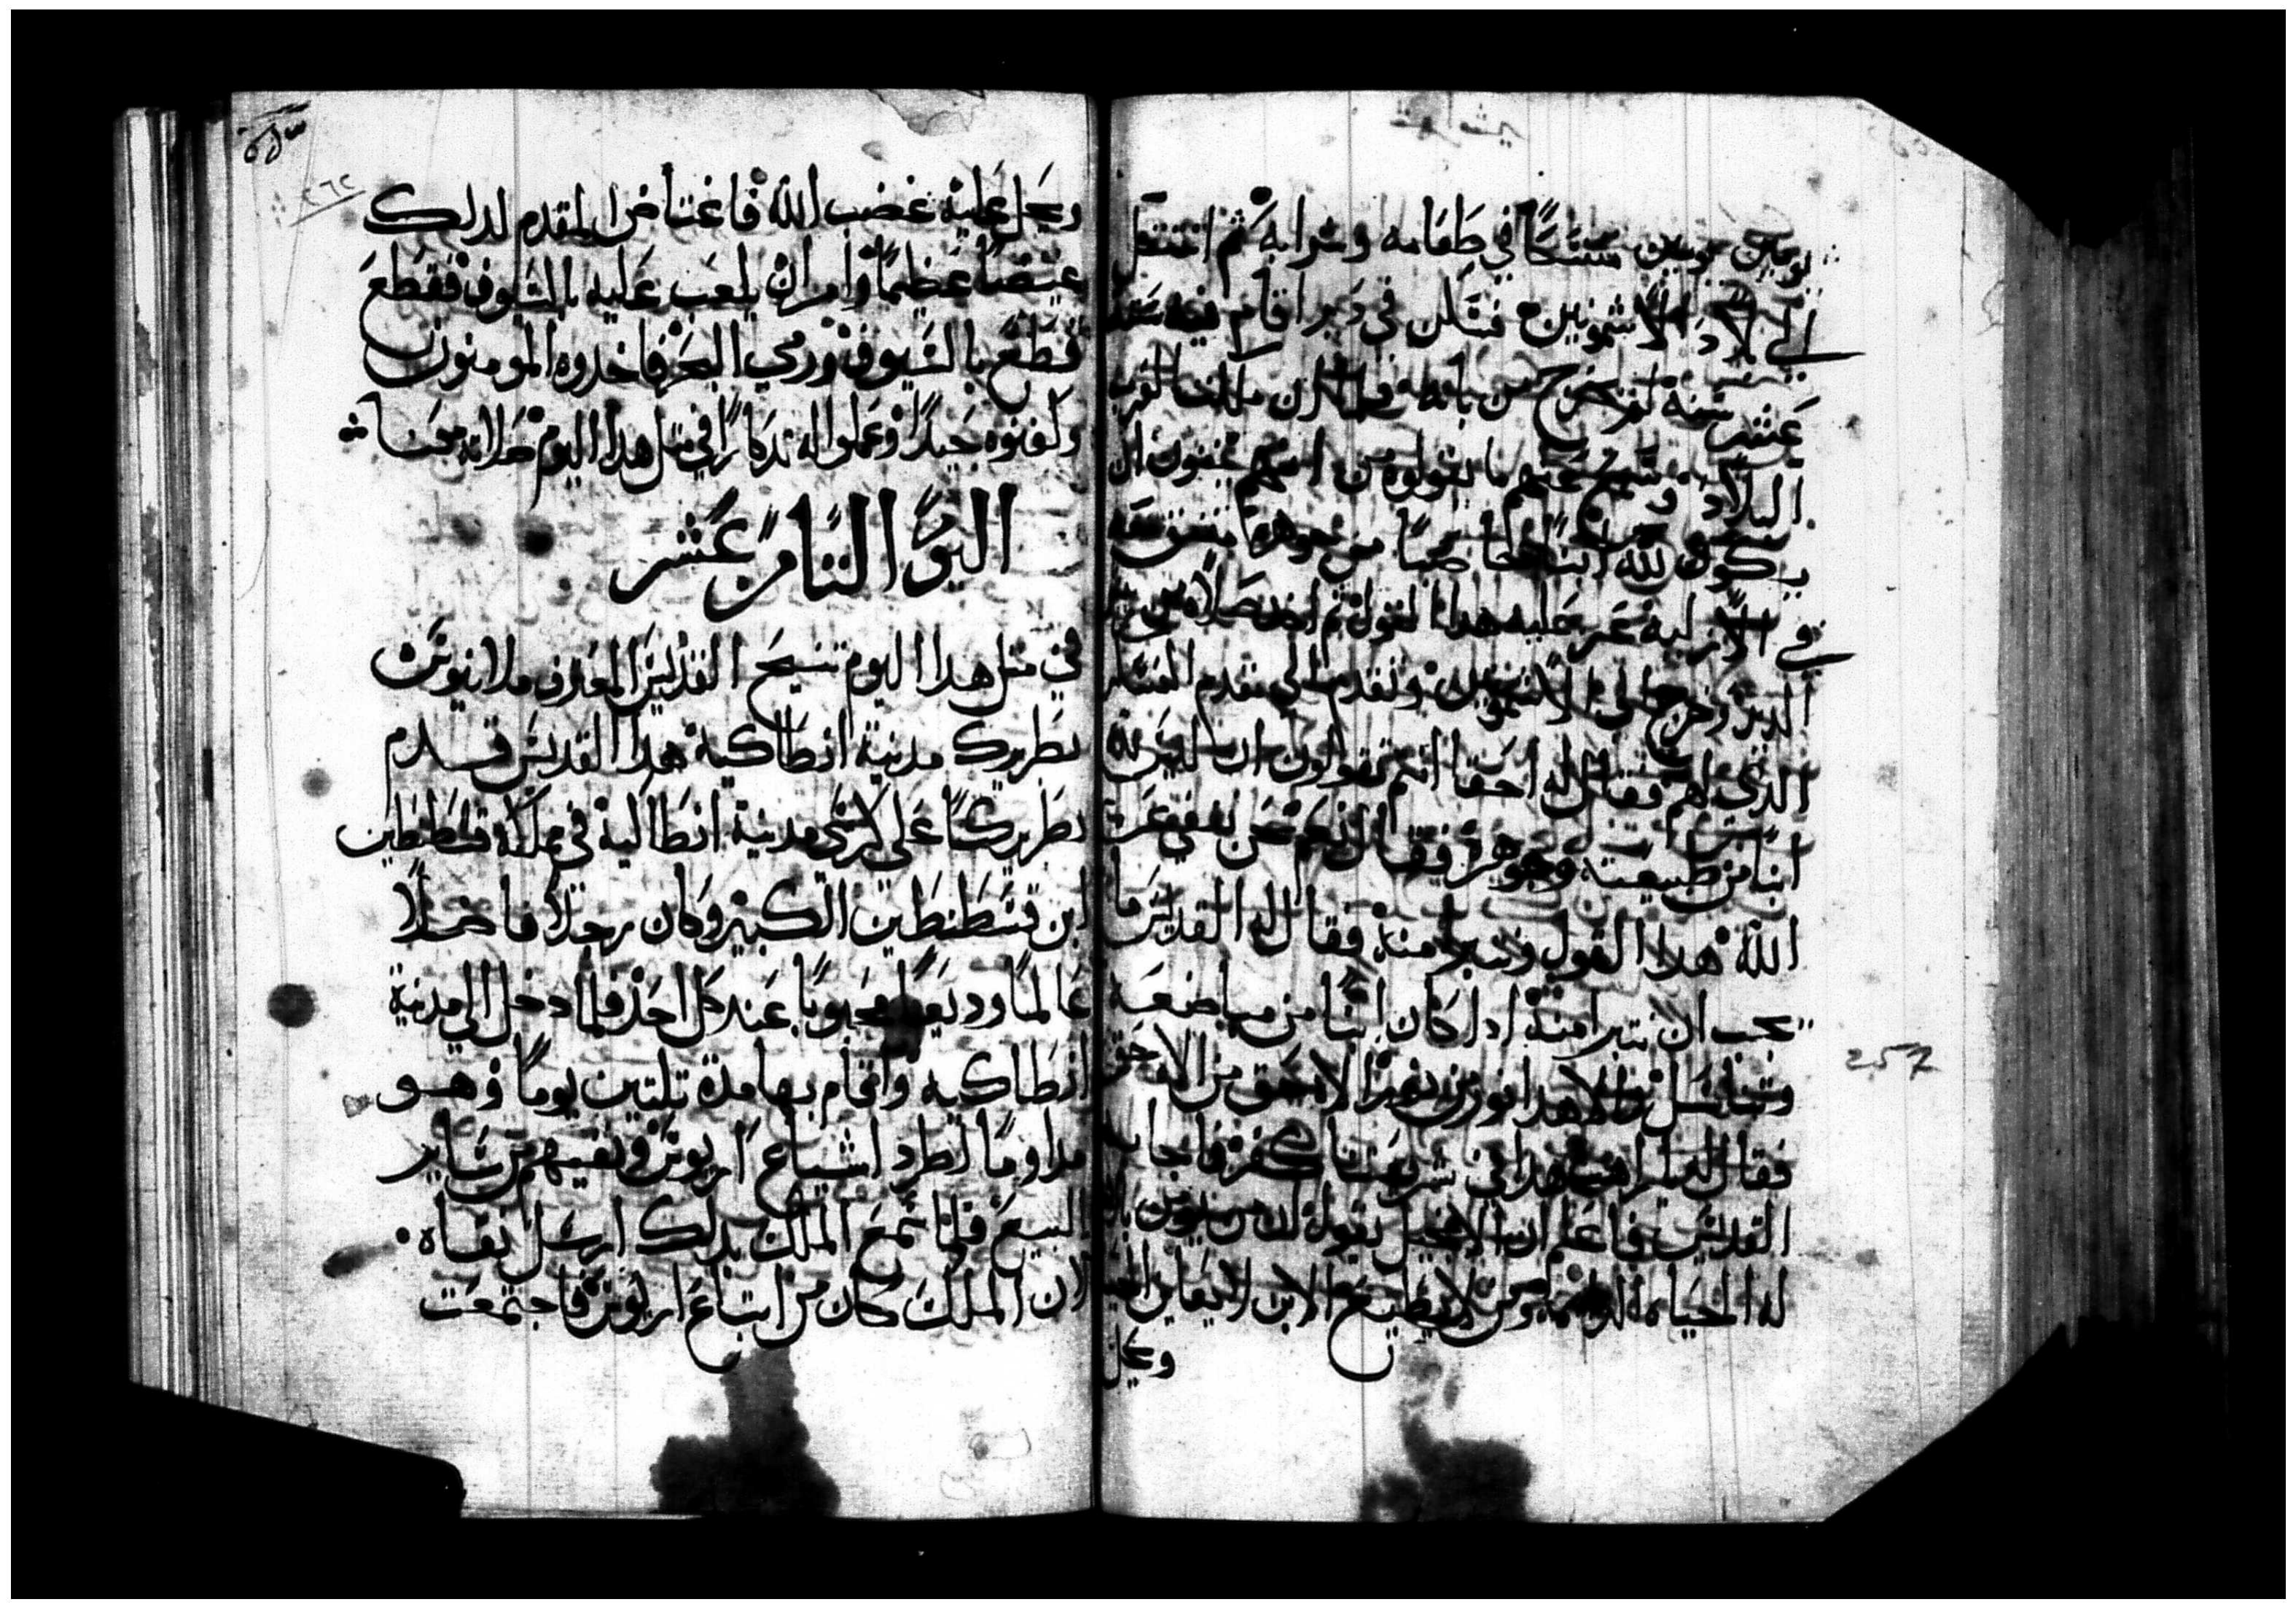 يومين يومين مسحًا في طعامه وشرابه ثم انتقل
الي بلاد الاشمونين فسكن في دير اقام فيه سته
عشر سنه لم يخرج من بابه فلما ان ملك العرب
البلاد وسمع عنهم ما يقولوه من انهم ينفون ان
يكون لله ابنًا من جوهره
في الازليه عز عليه هدا القول ثم اخد صلاه
الدير وخرج الي الاشمونين وتقدم الي مقدم العسكر
الدي لهم فقال له احقا انتم تقولون ان ليس لله
ابنًا من طبيعته وجوهره فقال نعم نحن ننفي عن
الله هدا القول ونتبرا منه فقال له القديس ما
يجب ان نتبرا منه ادا كان ابنًا من
نور من نور الاه حق من الاه حق
فقال له هدا في شريعتنا كفر فاجابه
القديس فاعلم ان الانجيل يقول ان من يومن بالابن
له الحياه الدايمه ومن لا يطيع الابن لا يعاين الحياه
ويحل
ويحل عليه غضب الله فاغتاض المقدم لدلك
غيضًا عظيمًا وامر ان يلعب عليه بالسيوف فقطع
فقطع بالسيوف ورمي البحر فاخدوه المومنون
وكفنوه جيدًا وعملوا له تدكارًا في متل هدا اليوم صلاته معنا
اليوم التامن عشر
في متل هدا اليوم تنيح القديس المعترف ملاتيوس
بطريرك مدينة انطاكيه هدا القديس قدم
بطريركًا على كرسي مدينة انطاكيه في مملكة قسطنطين
ابن قسطنطين الكبير وكان رجلاً فاضلاً
عالمًا وديعًا محبوبًا عند كل احد فلما دخل الي مدينة
انطاكيه واقام بها مدة تلتين يومًا وهو
مداومًا لطرد اشياع اريوس ونفيهم من ساير
البيع فلما سمع الملك بدلك ارسل نفاه
لان الملك كان من اتباع اريوس فاجتمعت
٢٦٢
257